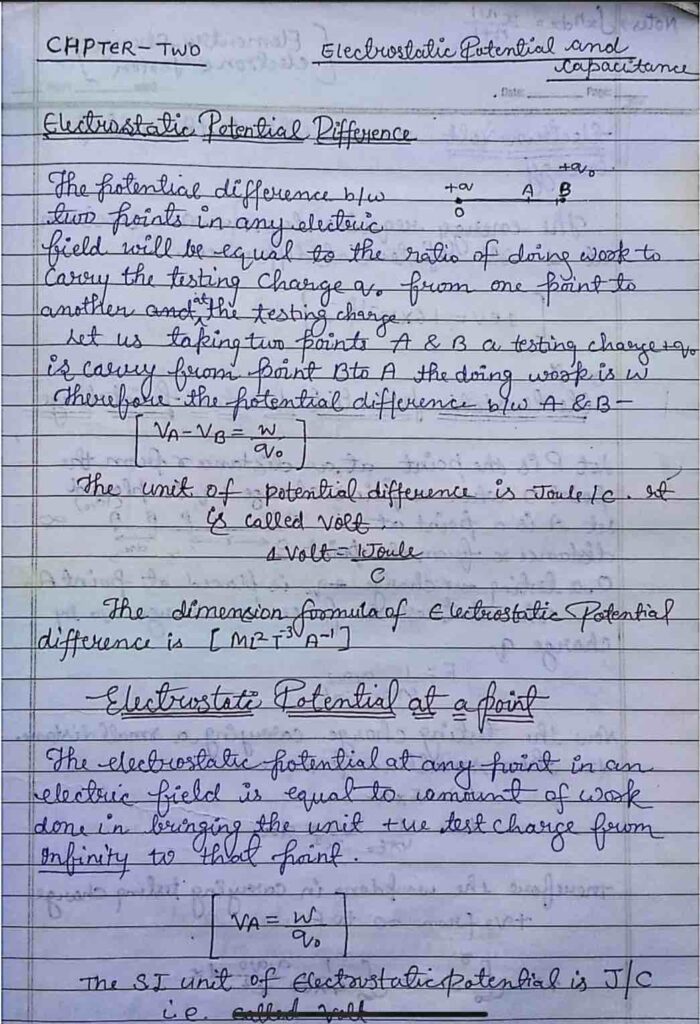 CHPTER-TWO Electrostatic Potential and
Capacitance
Date: Page:
Electrostatic Potential Difference
+q₀
The potential difference b/w +q A B
two points in any electric O
field will be equal to the ratio of doing work to
carry the testing charge q₀ from one point to
another and at the testing charge.
Let us taking two points A & B a testing charge +q₀
is carry from point B to A the doing work is W
Therefore the potential difference b/w A & B -
[ VA - VB = W/q₀ ]
The unit of potential difference is Joule/C. It
is called volt
1 Volt = 1Joule/C
The dimension foomula of Electrostatic Potential
difference is [ ML² T⁻³ A⁻¹ ]
Electrostatic Potential at a point
The electrostatic potential at any point in an
electric field is equal to amount of work
done in bringing the unit +ve test charge from
infinity to that point.
[ VA = W/q₀ ]
The SI unit of Electrostatic potential is J/C
i.e. called Volt